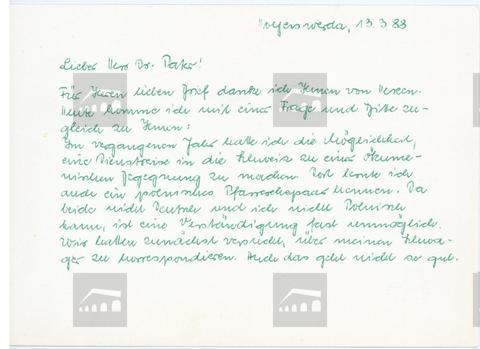 Hoyerswerda, 13.3.88
Lieber Herr Dr. !
Für Ihren lieben Brief danke ich Ihnen von Herzen.
Heute komme ich mit einer Frage und Bitte zu-
gleich zu Ihnen:
Im vergangenen Jahr hatte ich die Möglichkeit,
eine Dienstreise in die Schweiz zu einer Ökume-
nischen Begegnung zu machen. Dort lernte ich
auch ein polnisches Pfarrerehepaar kennen. Da
beide nicht Deutsch und ich nicht Polnisch
kann, ist eine Verständigung fast unmöglich.
Wir hatten zunächst versucht, über meinen Schwa-
ger zu korrespondieren. Auch das geht nicht so gut.